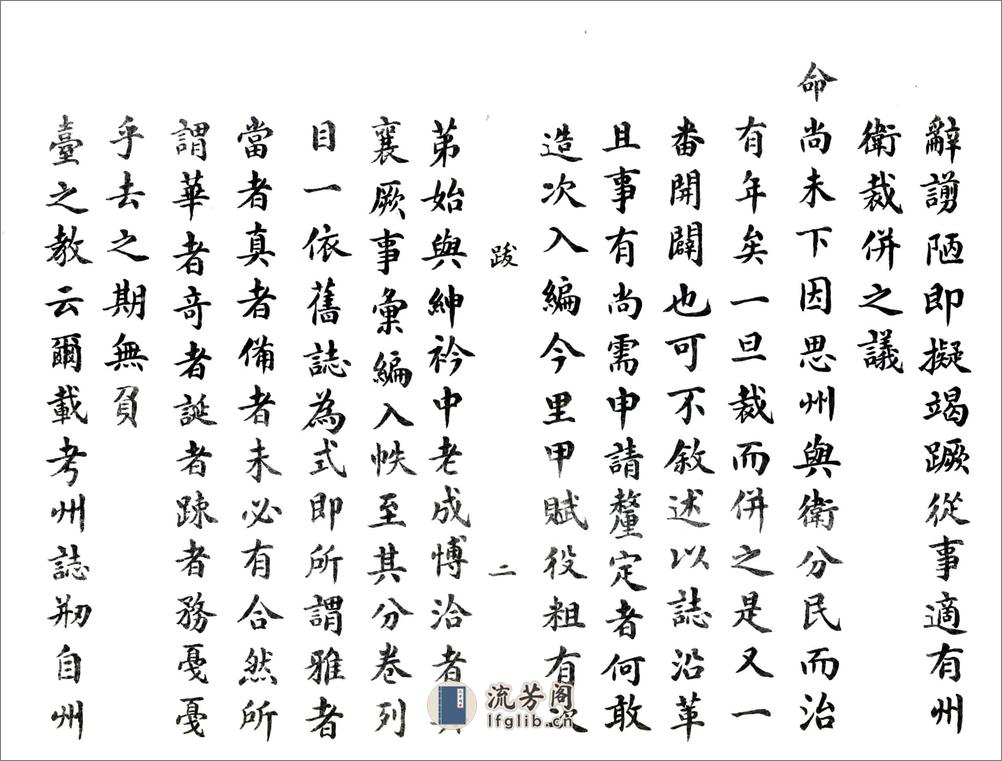 辭謭陋即擬竭蹶從事適有州
衛裁併之議
命尚未下因思州與衛分民而治
有年矣一旦裁而併之是又一
番開闢也可不敘述以誌沿革
且事有尚需申請釐定者何敢
造次入編今里甲賦役粗有次
跋
二
第始與紳衿中老成愽洽者
襄厥事彙編入帙至其分卷列
目一依舊誌為式即所謂雅者
當者真者備者未必有合然所
謂華者奇者誕者踈者務戞戞
乎去之期無負
臺之教云爾載考州誌刱自州
流芳阁
lfglib.cn